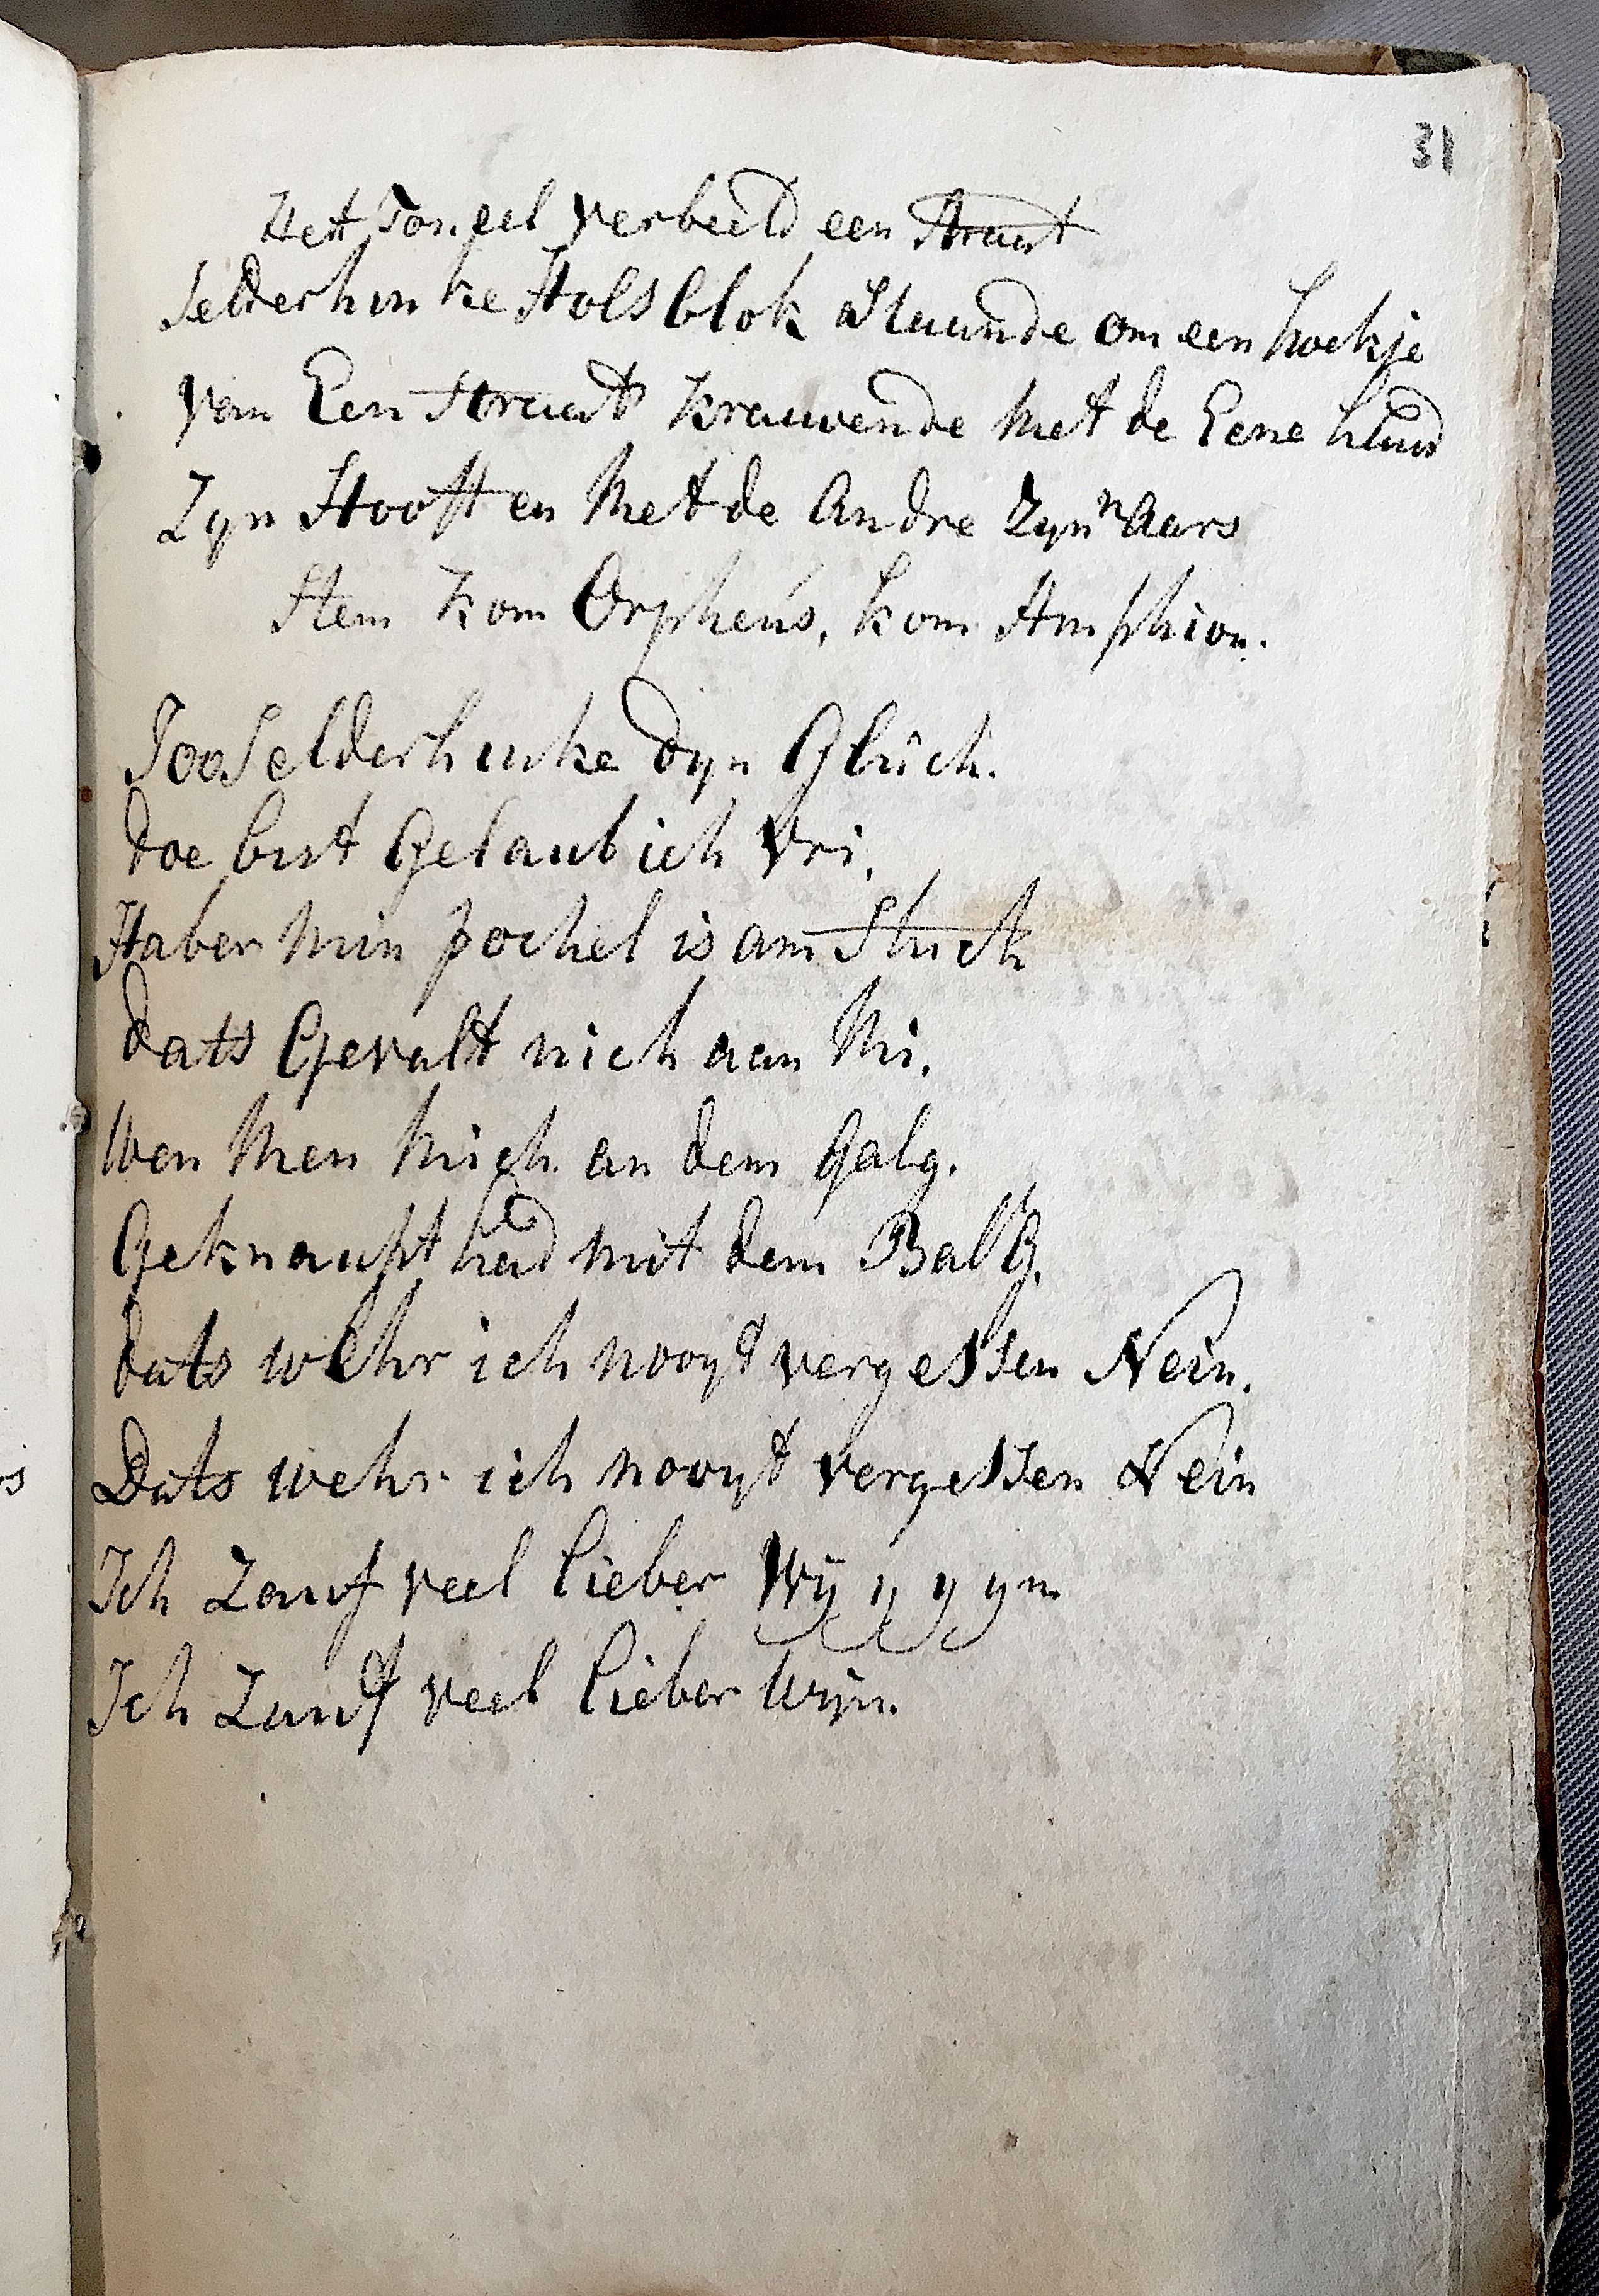 31
Het Toneel verbeeld een Straat
Selderhinke Holsblok Staande om een hoekje
van Een Straat krauwende met de Eene hand
Zyn Hooft en Met de Andre zynn aars
Stem kom Orpheús, kom Amphion.
Joo Selderhinke dyn Glùck.
doe bist Gelaub ich Vri.
Haber min pochel is am Stuck
dats Gevalt nich aan Mi.
Wen Men Mich an dem Galg.
Geknaupt had mit dem Balg.
dats wehr ich nooyt vergessen Nein.
Dats wehr ich nooyt vergessen Nein
Ich Zauf veel lieber Wÿ y y yn
Ich Zauf veel lieber Wijn.